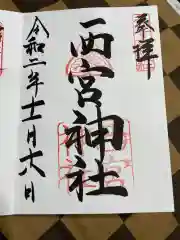 奉拝
西宮神社
令和二年十一月十六日